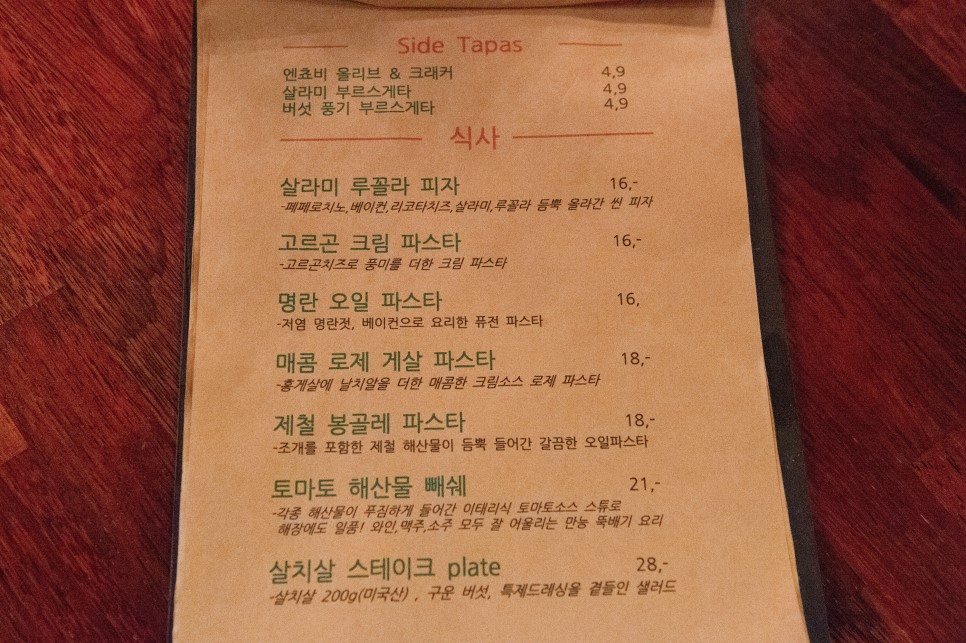 Side Tapas
엔쵸비 올리브 & 크래커 4,9
살라미 부르스게타 4,9
버섯 풍기 부르스게타 4,9
식사
살라미 루꼴라 피자 16,-
-페페로치노,베이컨,리코타치즈,살라미,루꼴라 듬뿍 올라간 씬 피자
고르곤 크림 파스타 16,-
-고르곤치즈로 풍미를 더한 크림 파스타
명란 오일 파스타 16,
-저염 명란젓, 베이컨으로 요리한 퓨전 파스타
매콤 로제 게살 파스타 18,-
-홍게살에 날치알을 더한 매콤한 크림소스 로제 파스타
제철 봉골레 파스타 18,-
-조개를 포함한 제철 해산물이 듬뿍 들어간 갈끔한 오일파스타
토마토 해산물 빼쉐 21,-
-각종 해산물이 푸짐하게 들어간 이태리식 토마토소스 스튜로
해장에도 일품! 와인,맥주,소주 모두 잘 어울리는 만능 뚝배기 요리
살치살 스테이크 plate 28,-
-살치살 200g(미국산) , 구운 버섯, 특제드레싱을 곁들인 샐러드